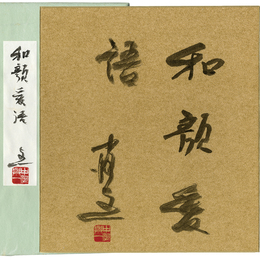 和顔愛語
和顔愛
語